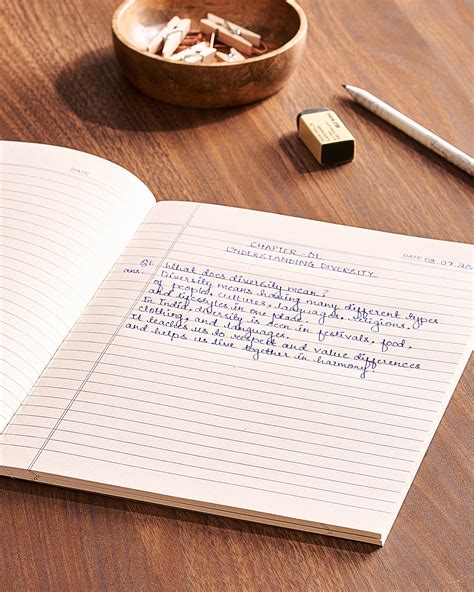 DATE
CHAPTER - 01
DATE 08.07.20
UNDERSTANDING DIVERSITY
Q1. What does diversity mean?
ans. Diversity means having many different types
of people, cultures, languages, religions,
and lifestyles in one place.
In India, diversity is seen in festivals, food,
clothing, and languages.
It teaches us to respect and value differences
and helps us live together in harmony.